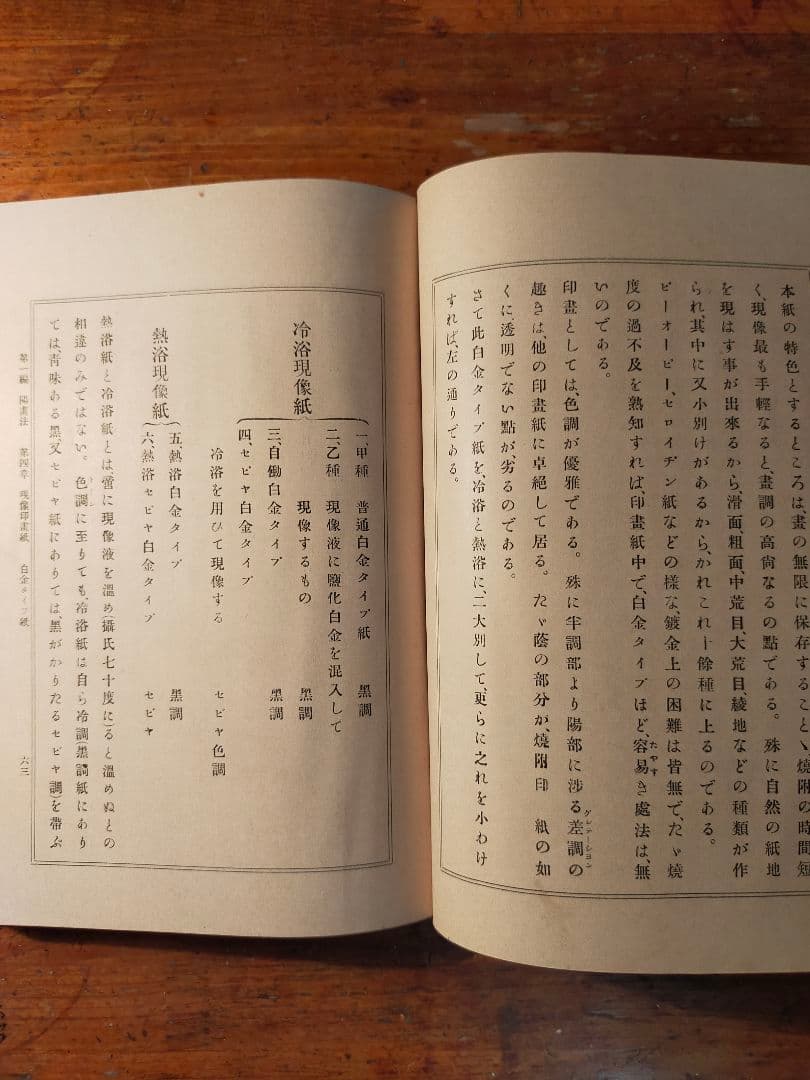 本紙の特色とするところは、畫の無限に保存することヽ燒附の時間短
く、現像最も手輕なると、畫調の高尙なるの點である。殊に自然の紙地
を現はす事が出來るから、滑面、粗面、中荒目、大荒目、綾地などの種類が作
られ、其中に又小別けがあるから、かれこれ十餘種に上るのである。
ピーオーピー、セロイヂン紙などの樣な、鍍金上の困難は皆無で、たゞ燒
度の過不及を熟知すれば、印畫紙中で、白金タイプほど、容易き處法は、無
たやす
いのである。
印畫としては、色調が優雅である。殊に半調部より陽部に涉る差調の
グレデーシヨン
趣きは、他の印畫紙に卓絕して居る。たゞ蔭の部分が、燒附印 紙の如
くに、透明でない點が、劣るのである。
さて此白金タイプ紙を、冷浴と熱浴に、二大別して、更らに之れを小わけ
すれば、左の通りである。
冷浴現像紙
一、甲種 普通白金タイプ紙 黑調
二、乙種 現像液に鹽化白金を混入して
現像するもの 黑調
三、自働白金タイプ 黑調
四、セピヤ白金タイプ
冷浴を用ひて現像する セピヤ色調
熱浴現像紙
五、熱浴白金タイプ 黑調
六、熱浴セピヤ白金タイプ セピヤ
熱浴紙と冷浴紙とは、啻に現像液を溫め(攝氏七十度に)ると溫めぬとの
相違のみではない。色調に至りても、冷浴紙は自ら冷調(黑調紙にあり
ては、靑味ある黑又セピヤ紙にありては、黑がかりたるセピヤ調)を帶ぶ
第一編 陽畫法 第四章 現像印畫紙 白金タイプ紙 六三